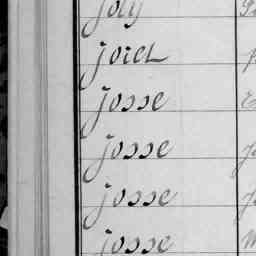 Joly
Joret
Josse
Josse
Josse
Josse